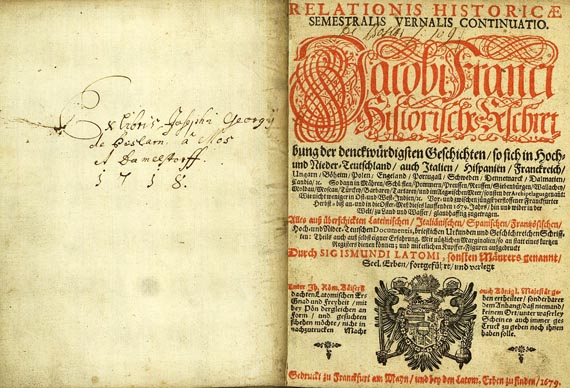 Ex libris Josephi Georgij
de
à Mos
et Damelstorff.
1718.
RELATIONIS HISTORICÆ
SEMESTRALIS VERNALIS CONTINUATIO.
Jacobi Franci
Historische Beschrei-
bung der denckwürdigsten Geschichten / so sich in Hoch-
und Nieder-Teutschland / auch Italien / Hispanien / Franckreich /
Ungarn / Böheim / Polen / Engeland / Portugall / Schweden / Dennemarck / Dalmatien /
Candia / ꝛc. So dann in Mähren / Schlesien / Pommern / Preussen / Reussen / Siebenbürgen / Wallachey /
Moldau / Moscau / Türckey / Barbarey / Tartarey / und im Aegeischen Meer / sonsten der Archipelagus gehabt /
Wie nicht weniger in Ost- und West-Indien / ꝛc. Vor- und zwischen jüngst verflossener Franckfurter
Herbst- biß an- und in die Oster-Meß dieses lauffenden 1679. Jahrs / hin und wider in der
Welt / zu Land und Wasser / glaubhafftig zugetragen.
Alles auß überschickten Lateinischen / Italiänischen / Spanischen / Frantzösischen /
Hoch- und Nider-Teutschen Documentis, brieflichen Urkunden und Geschichtreichen Schriff-
ten: Theils auch auß selbst eigner Erfahrung. Mit nützlichen Marginalien / so an statt eines kurtzen
Registers dienen können; und mit etlichen Kupffer-Figuren außgedruckt
Durch SIGISMUNDI LATOMI, sonsten Mäurers genannt /
Seel. Erben / fortgeführt / und verlegt
Unter Ih. Röm. Käiserl.
dachten Latomischen Er-
Gnad und Freyheit / mit
bey Pön dergleichen an
Form / und gesuchten
schehen möchte / nicht in
nachzutrucken Macht
auch Königl. Majestät ge-
ben ertheilter / sonderbarer
dem Anhang / daß niemand
keinem Ort / unter waserley
Schein es auch immer ge-
Truck zu geben noch ihnen
haben solle.
Gedruckt zu Franckfurt am Mayn / und bey den Latom. Erben zu finden / 1679.